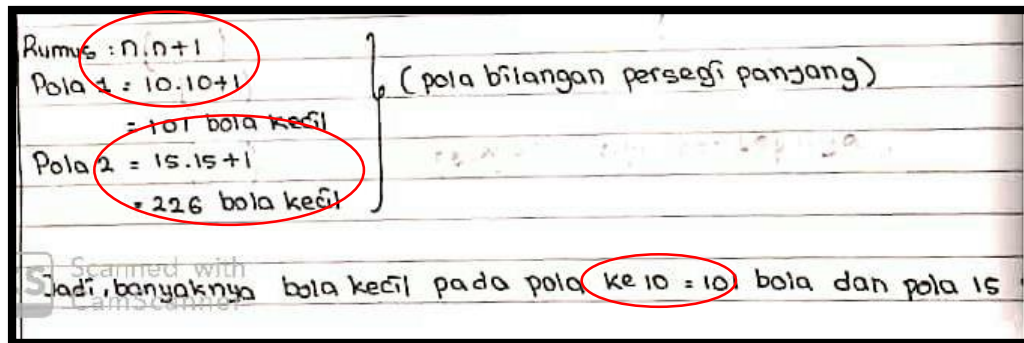 Rumus : n.n+1
Pola 1 = 10.10+1
= 101 bola kecil
Pola 2 = 15.15+1
= 226 bola kecil
(pola bilangan persegi panjang)
Scanned with
CamScanner
Jadi, banyaknya bola kecil pada pola ke 10 = 101 bola dan pola 15